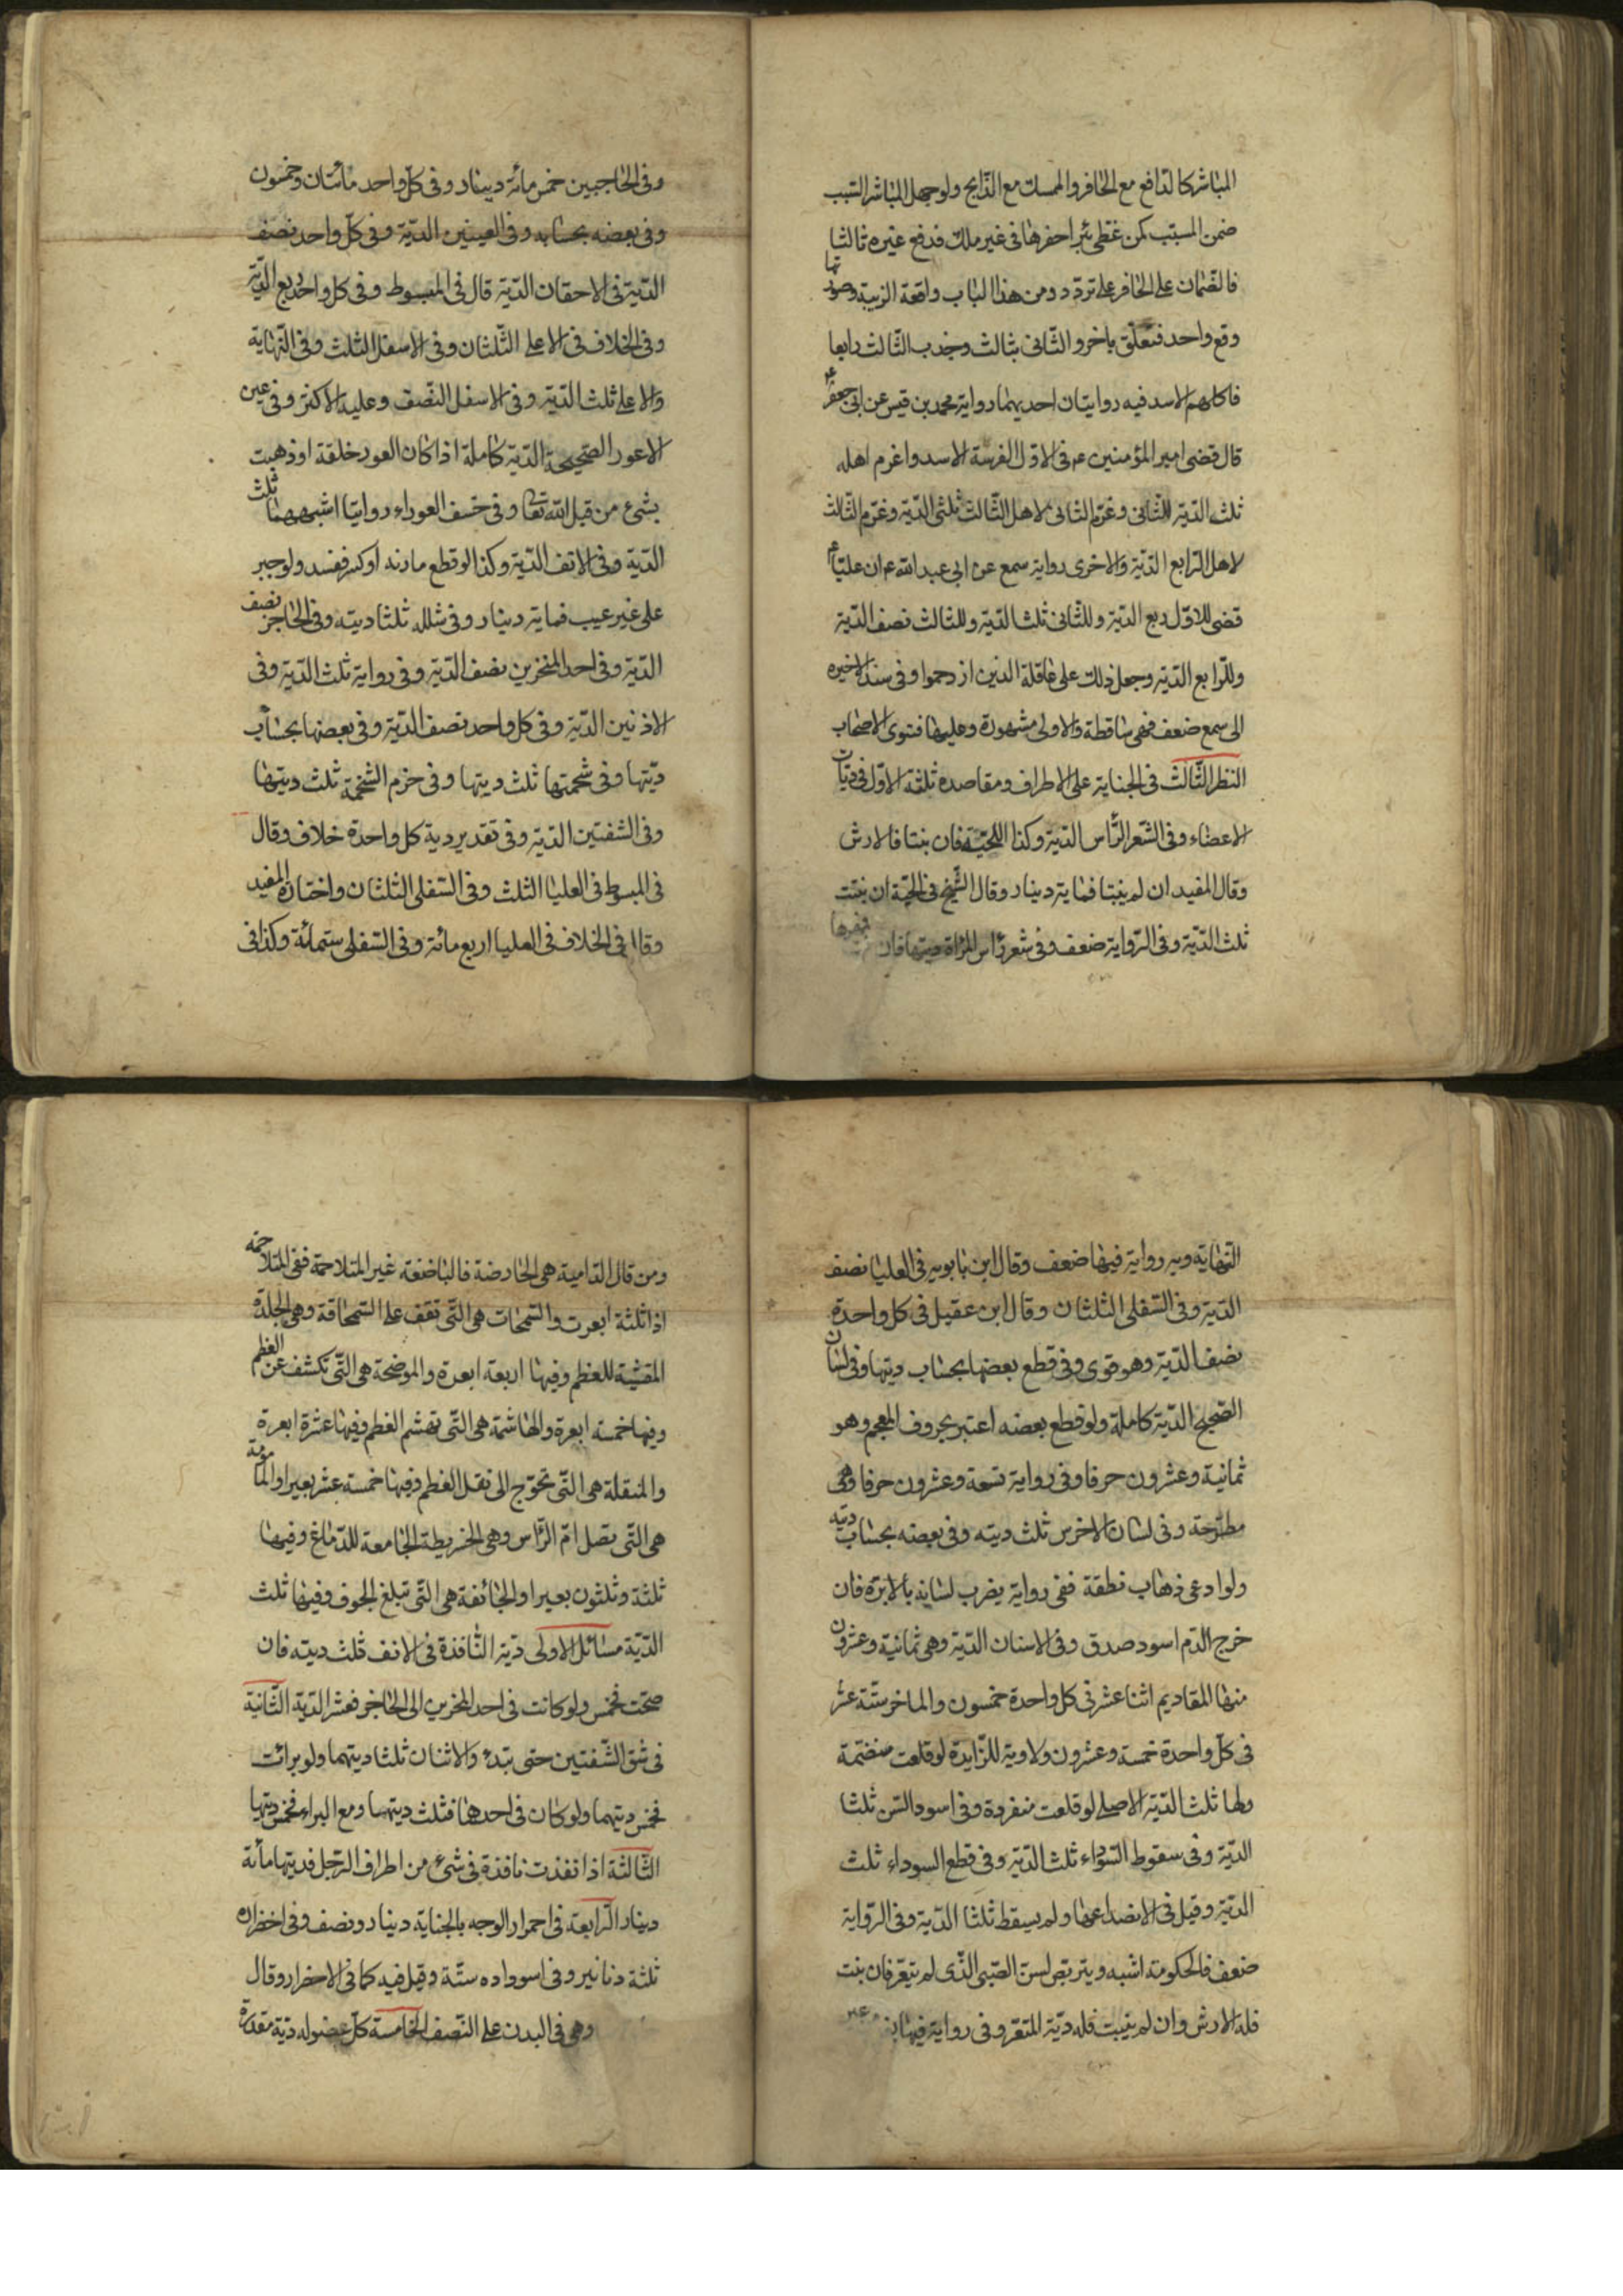 المباشر كالدافع مع الحافر والممسك مع الذابح ولو جهل المباشر السبب
ضمن المسبب كمن غطى بئرا حفرها فى غير ملك فدفع غيره ثالثا
فالضمان على الحافر على تردد ومن هذا الباب واقعة الزبية وصورتها
وقع واحد فتعلق باخر والثانى بثالث وجذب الثالث رابعا
فاكلهم الاسد فيه روايتان احديهما رواية محمد بن قيس عن ابى جعفر ع
قال قضى امير المؤمنين ع فى الاول الفرسة الاسد واغرم اهله
ثلث الدية للثانى وغرم الثانى لاهل الثالث ثلثى الدية وغرم الثالث
لاهل الرابع الدية والاخرى رواية سمع عن ابى عبد الله ع ان عليا ع
قضى للاول ربع الدية وللثانى ثلث الدية وللثالث نصف الدية
وللرابع الدية وجعل ذلك على عاقلة الذين ازدحموا وفى سند الاخيره
الى سمع ضعف فهى ساقطة والاولى مشهورة وعليها فتوى الاصحاب
النظر الثالث فى الجناية على الاطراف ومقاصده ثلثة الاول فى ديات
الاعضاء وفى الشعر الراس الدية وكذا اللحية فان نبتا فالارش
وقال المفيد ان لم ينبتا فماية دينار وقال الشيخ فى اللحية ان نبتت
ثلث الدية وفى الرواية ضعف وفى شعر راس المراة ديتها فان فمهرها
وفى الحاجبين خمس مائة دينار وفى كل واحد مائتان وخمسون
وفى بعضه بحسابه وفى العينين الدية وفى كل واحد نصف
الدية فى الاحقان الدية قال فى المبسوط وفى كل واحد ربع الدية
وفى الخلاف فى الاعلى الثلثان وفى الاسفل الثلث وفى النهاية
والاعلى ثلث الدية وفى الاسفل النصف وعليه الاكثر وفى عين
الاعور الصحيحة الدية كاملة اذا كان العور خلقة او ذهبت
بشىء من قبل الله تعا وفى خسف العوراء روايتا اشبههما ثلث
الدية وفى الانف الدية وكذا لو قطع مارنه او كسر ففسد ولو جبر
على غير عيب فماية دينار وفى شلله ثلثا ديته وفى الحاجز نصف
الدية وفى احد المنخرين نصف الدية وفى رواية ثلث الدية وفى
الاذنين الدية وفى كل واحد نصف الدية وفى بعضها بحساب
ديتها وفى شحمتها ثلث ديتها وفى خرم الشحمة ثلث ديتها
وفى الشفتين الدية وفى تقدير دية كل واحدة خلاف وقال
فى المبسوط فى العليا الثلث وفى السفلى الثلثان واختاره المفيد
وقال فى الخلاف فى العليا اربع مائة وفى السفلى ستمائة وكذا فى
النهاية وبه رواية فيها ضعف وقال ابن بابويه فى العليا نصف
الدية وفى السفلى الثلثان وقال ابن عقيل فى كل واحدة
نصف الدية وهو قوى وفى قطع بعضها بحساب ديتها وفى لسان
الصحيح الدية كاملة ولو قطع بعضه اعتبر بحروف المعجم وهو
ثمانية وعشرون حرفا وفى رواية تسعة وعشرون حرفا وهى
مطرحة وفى لسان الاخرس ثلث ديته وفى بعضه بحساب ديته
ولو ادعى ذهاب نطقة ففى رواية يضرب لسانه بالابرة فان
خرج الدم اسود صدق وفى الاسنان الدية وهى ثمانية وعشرون
منها المقاديم اثنا عشر فى كل واحدة خمسون والماخر ستة عشر
فى كل واحدة خمسة وعشرون ولا دية للزايدة لو قلعت منضمة
ولها ثلث الدية الاصلى لو قلعت منفردة وفى اسود السن ثلثا
الدية وفى سقوط السوداء ثلث الدية وفى قطع السوداء ثلث
الدية وقيل فى الانصداعها ولم يسقط ثلثا الدية وفى الرواية
ضعف فالحكومة اشبه ويتربص لسن الصبى الذى لم يثغر فان نبت
فله الارش وان لم ينبت فله دية المثغر وفى رواية فيها
ومن قال الدامية هى الحارضة فالباضعة غير المتلاحمة ففى المتلاحمة
اذا ثلثة ابعرة والسمحات هى التى تقف على السمحاقة وهى الجلدة
المغشية للعظم وفيها اربعة ابعرة والموضحة هى التى تكشف عن العظم
وفيها خمسة ابعرة والهاشمة هى التى تهشم العظم وفيها عشرة ابعرة
والمنقلة هى التى تحوج الى نقل العظم وفيها خمسة عشر بعيرا والمامومة
هى التى تصل ام الراس وهى الخريطة الجامعة للدماغ وفيها
ثلثة وثلثون بعيرا والجائفة هى التى تبلغ الجوف وفيها ثلث
الدية مسائل الاولى دية النافذة فى الانف ثلث ديته فان
صحت فخمس ولو كانت فى احد المنخرين الى الحاجز فعشر الدية الثانية
فى شق الشفتين حتى تبدء والاثنان ثلثا ديتهما ولو برائت
فخمس ديتهما ولو كان فى احدهما فثلث ديتها ومع البراء فخمس ديتها
الثالثة اذا نفذت نافذة فى شىء من اطراف الرجل فديتها مائة
دينار الرابعة فى احمرار الوجه بالجناية دينار ونصف وفى اخضراره
ثلثة دنانير وفى اسوداده ستة وقيل فيه كما فى الاخضرار وقال
وهى فى البدن على النصف الخامسة كل عضو له دية مقدرة